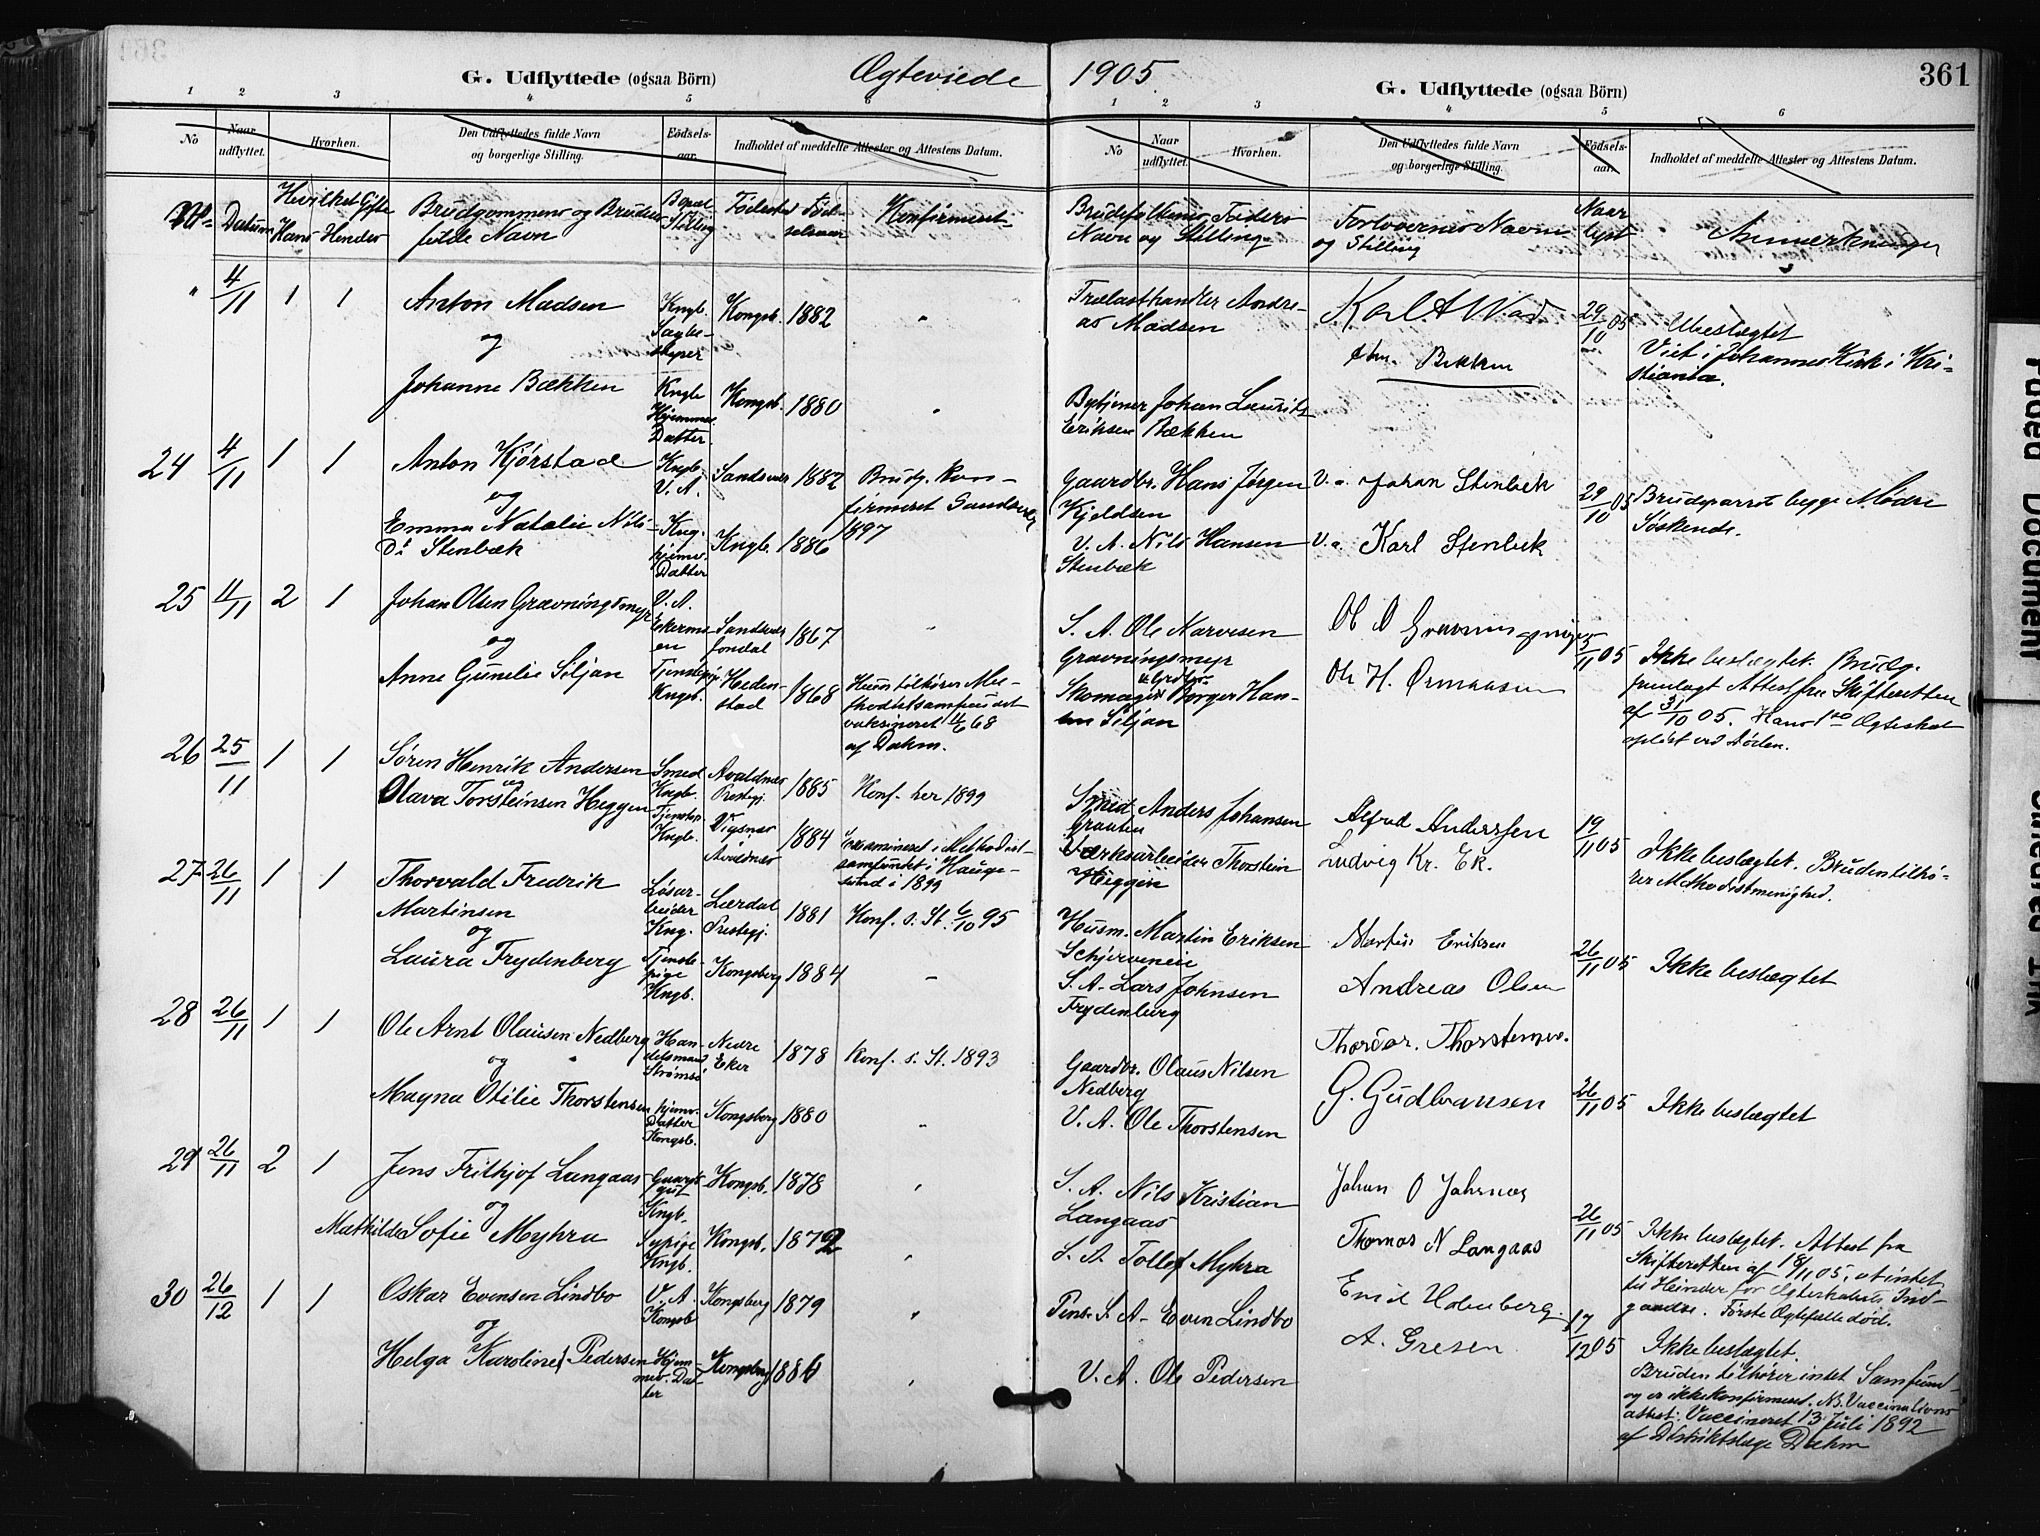 G. Udflyttede (ogsaa Börn)
Ægteviede 1905
G. Udflyttede (ogsaa Börn)
361
1 2 3 4 5 6
1 2 3 4 5 6
No
Naar udflyttet.
Hvorhen.
Den Udflyttedes fulde Navn og borgerlige Stilling.
Födsels-aar.
Indholdet af meddelte Attester og Attestens Datum.
No
Naar udflyttet.
Hvorhen.
Den Udflyttedes fulde Navn og borgerlige Stilling.
Födsels-aar.
Indholdet af meddelte Attester og Attestens Datum.
No
Datum
Hvilket Gifte
Hans Hendes
Brudgommens og Brudens fulde Navn
Bopæl Stilling
Fødested
Fødselsaar
Konfirmeret
Brudefolkenes Faders Navn og Stilling
Forlovernes Navn og Stilling
Naar lyst
Anmerkninger
" 4/11 1 1 Anton Madsen
og
Johanne Bækken
Kngb. Sagbestyrer Kongsb. 1882 "
Kngb Hjemme Datter. Kongsb. 1880 "
Trælasthandler Andreas Madsen
Bytjener Johan Laurits Eriksen Bækken
Karl A Wad
Bekken
29/10 05
Ubeslegtet
Viet i Johannes Kirke i Kristiania.
24 4/11 1 1 Anton Kjørstad
og
Emma Natalie Nils D. Stenbæk
Kngb. V. A. Sandsvær 1882 Brudg. konfirmeret Sandsvær 1897
Kng. hjemv. Datter Kngb. 1886
Gaardbr. Hans Jørgen Kjeldsen
V. A. Nils Hansen Stenbæk
V. a Johan Stenbek
V. a Karl Stenbek
29/10 05
Brudeparret begge Mødre Søskende.
25 4/11 2 1 Johan Olsen Gravningsmyr
og
Anne Gunelie Siljan
V. A. 1867 "
Tjenstepige Kngsb. Hedenstad 1868 Hun tilhører Methodistsamfundet vaksineret 4/6 68 af Dahm.
S. A. Ole Narvesen Gravningsmyr
Skomager Borger Hansen Siljan
Ol O Gravningsmyr
Ole H. Ormaasen
5/11 05
Ikke beslægtet. Brudg. fremlagt Attest fra Skifteretten af 31/10 05. Hans 1ste Ægteskab opløst ved døden.
26 25/11 1 1 Søren Henrik Andersen
og
Olava Torsteinsen Heggen
Smed Kngb. Avaldnes Prestegj. 1885 Konf. her 1899
Tjenstep. Kngb. Vigsnes Avaldnes 1884 Examineret i Methodistsamfundet i Haugesund i 1899
Smed Anders Johansen
Værksarbeider Thorstein Heggen
Alfred Anderssen
Ludvig Kr. Ek.
19/11 05
Ikke beslægtet. Bruden tilhører Methodistmenighed.
27 26/11 1 1 Thorvald Fredrik Martinsen
og
Laura Frydenberg
Løsarbeider Kng. Lærdal Prestegj. 1881 Konf. s. St. 6/10 95
Tjenstepige Kngb. Kongsberg 1884 "
Husm. Martin Eriksen
S. A. Lars Johnsen Frydenberg
Martin Eriksen
Andreas Olsen
26/11 05
Ikke beslægtet
28 26/11 1 1 Ole Arnt Olausen Nedberg
og
Magna Otilie Thorstensen
Handelsmand Strømsø Nedre Eker 1878 Konf. s. St. 1893
hjemv. Datter Kongsb. Kongsberg 1880 "
Gaardbr. Olaus Nilsen Nedberg
V. A. Ole Thorstensen
G. Gudbransen
26/11 05
Ikke beslægtet
29 26/11 2 1 Jens Frithjof Langaas
og
Mathilde Sofie Myhra
Gaardsgut Kngb. Kongsb. 1878 "
Sypige Kngb. Kongsb. 1872 "
S. A. Nils Kristian Langaas
S. A. Tollef Myhra
Johan O Jahrnes
Thomas N Langaas
26/11 05
Ikke beslægtet. Attest fra Skifteretten af 18/11 05, at intet til Hinder for Ægteskabets Indgaaelse. Første Ægtefælle død.
30 26/12 1 1 Oskar Evensen Lindbo
og
Helga Karoline Pedersen
V. A. Kongsb Kongsberg 1879 "
Hjemmev. Datter Kongsberg 1886 "
Pens. S. A. Even Lindbo
V. A. Ole Pedersen
Emil Holmberg.
A. Gresen
17/12 05
Ikke beslægtet.
Bruden tilhører intet Samfund og er ikke konfirmeret. No Vaccinationsattest: Vaccineret 13 Juli 1892 af Distriktslæge Dahm
Faded Document